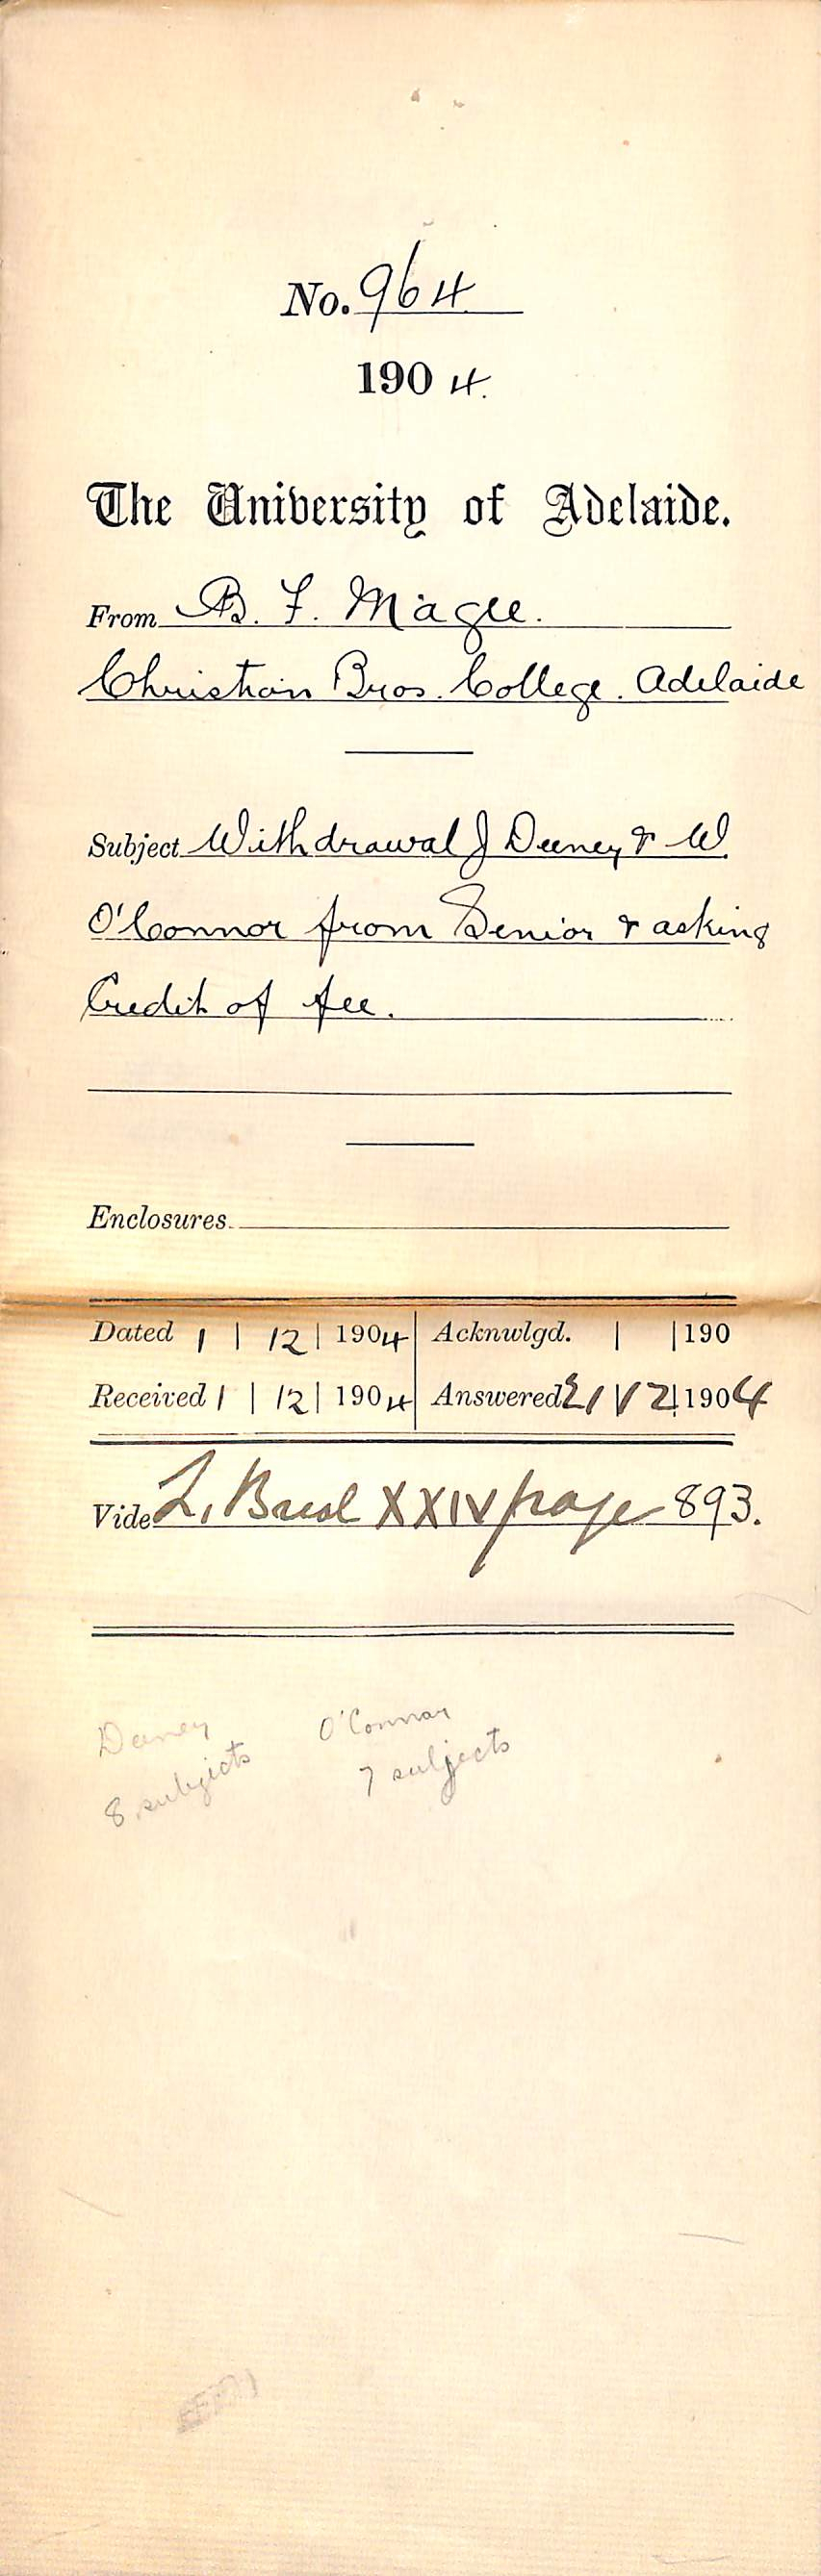 No. 964
1904.
The University of Adelaide.
From B. F. Magee.
Christian Bros. College. Adelaide
Subject Withdrawal J Deeney & W.
O'Connor from Senior & asking
Credit of fee.
Enclosures
Dated 1 | 12 | 1904 | Acknwlgd. | | 190
Received 1 | 12 | 1904 | Answered 2 / 12 | 1904
Vide L. XXIV page 893.
Deeney O'Connor
8 subjects 7 subjects